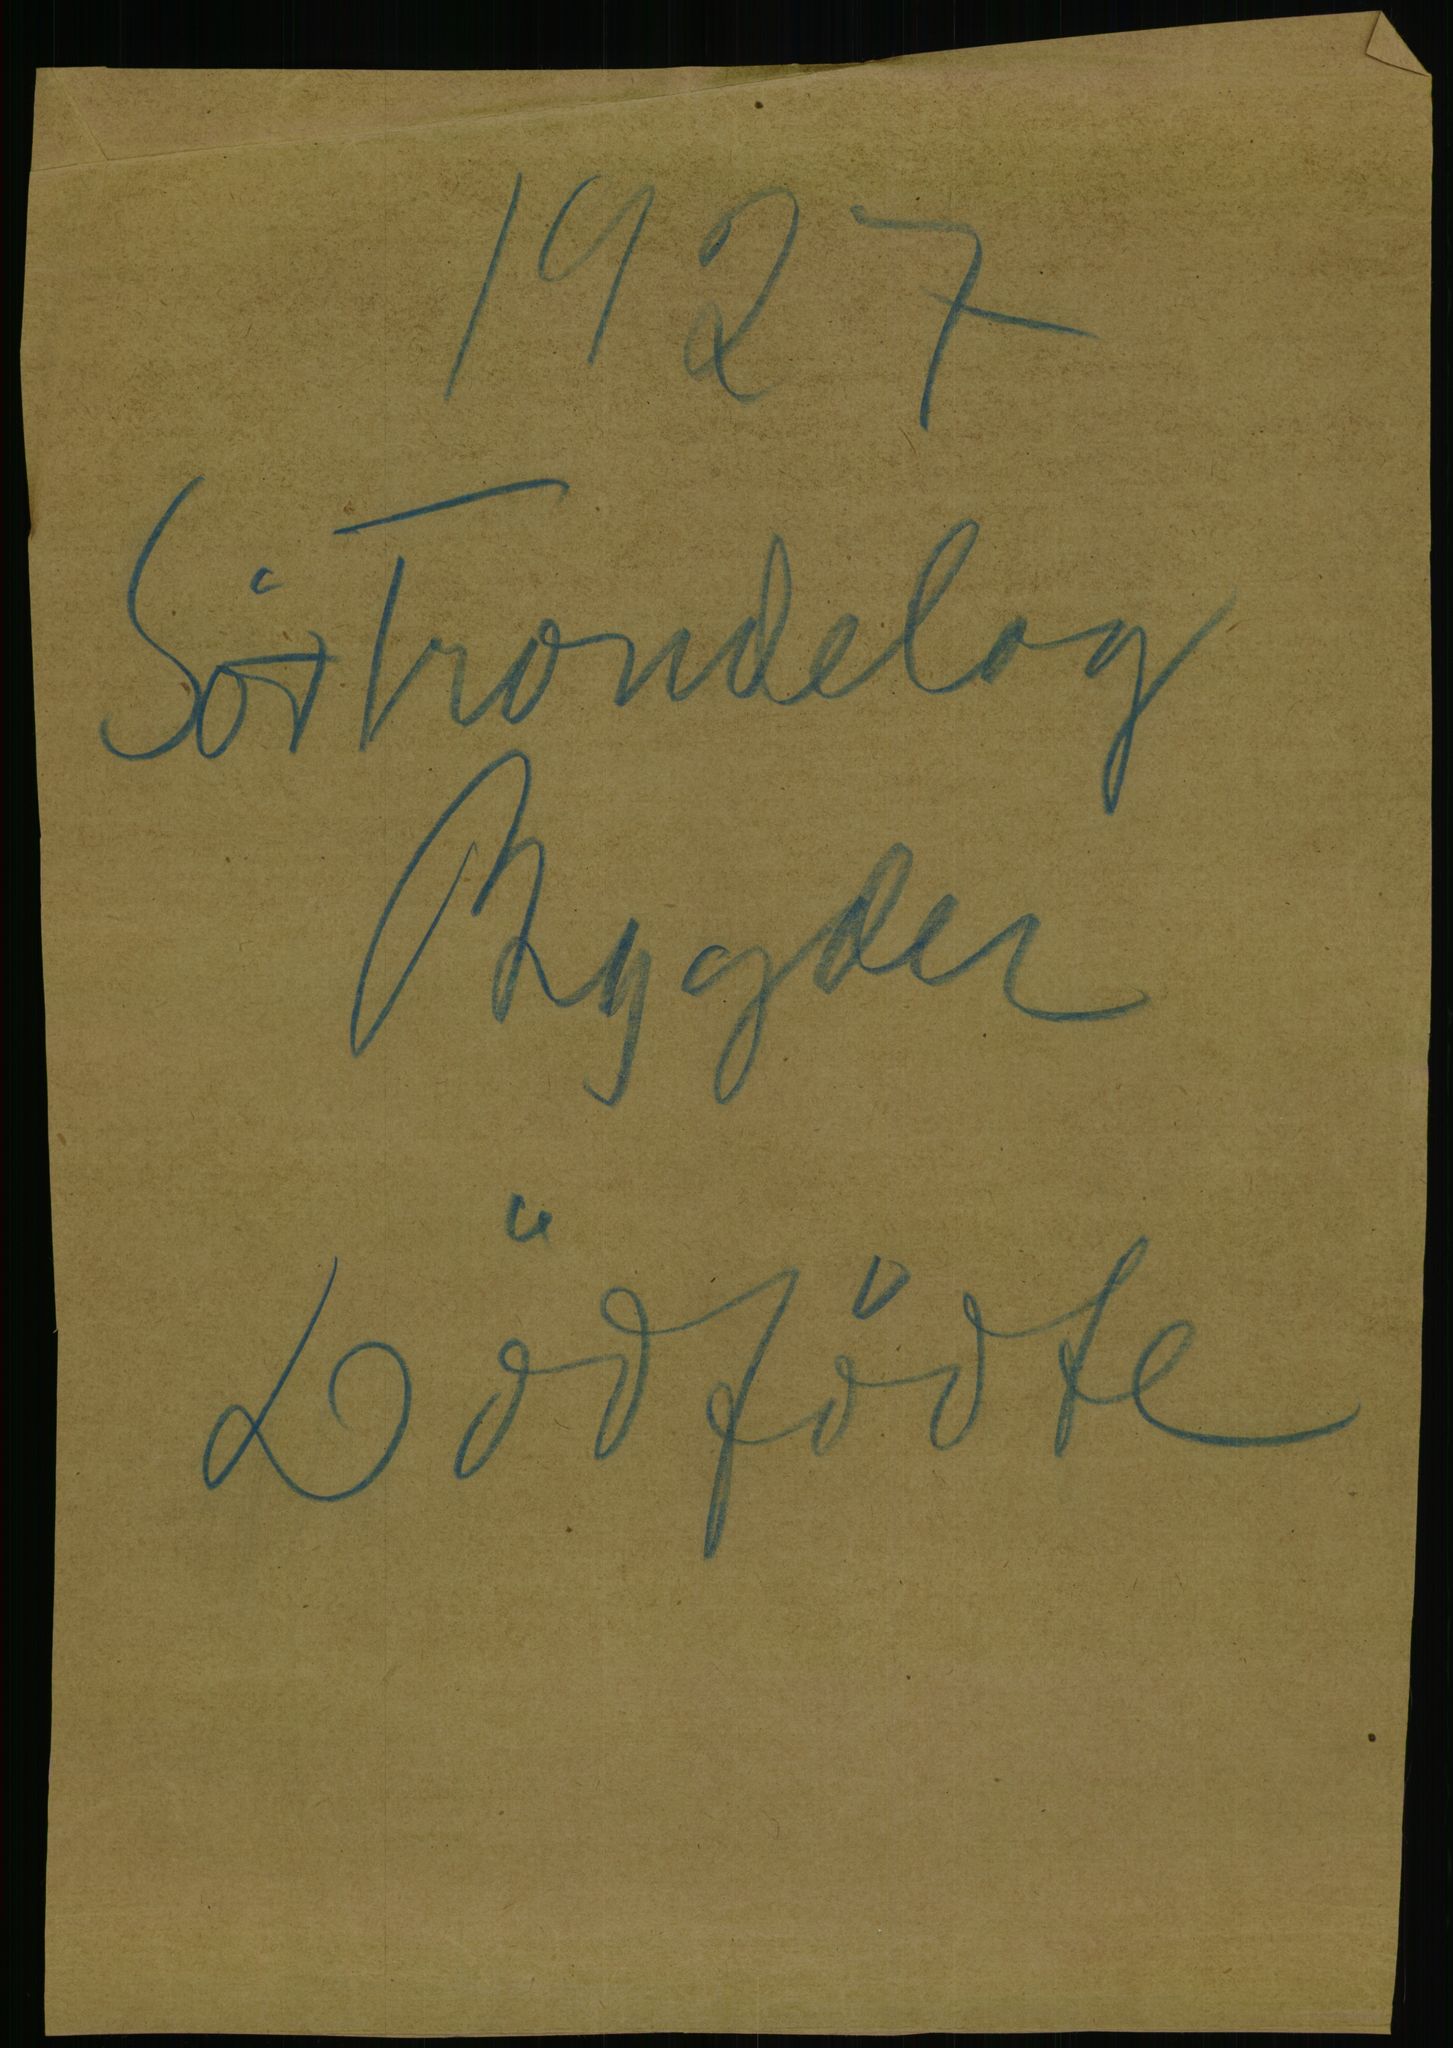 1927
Sör Trondelag
Bygder
Dödfödte